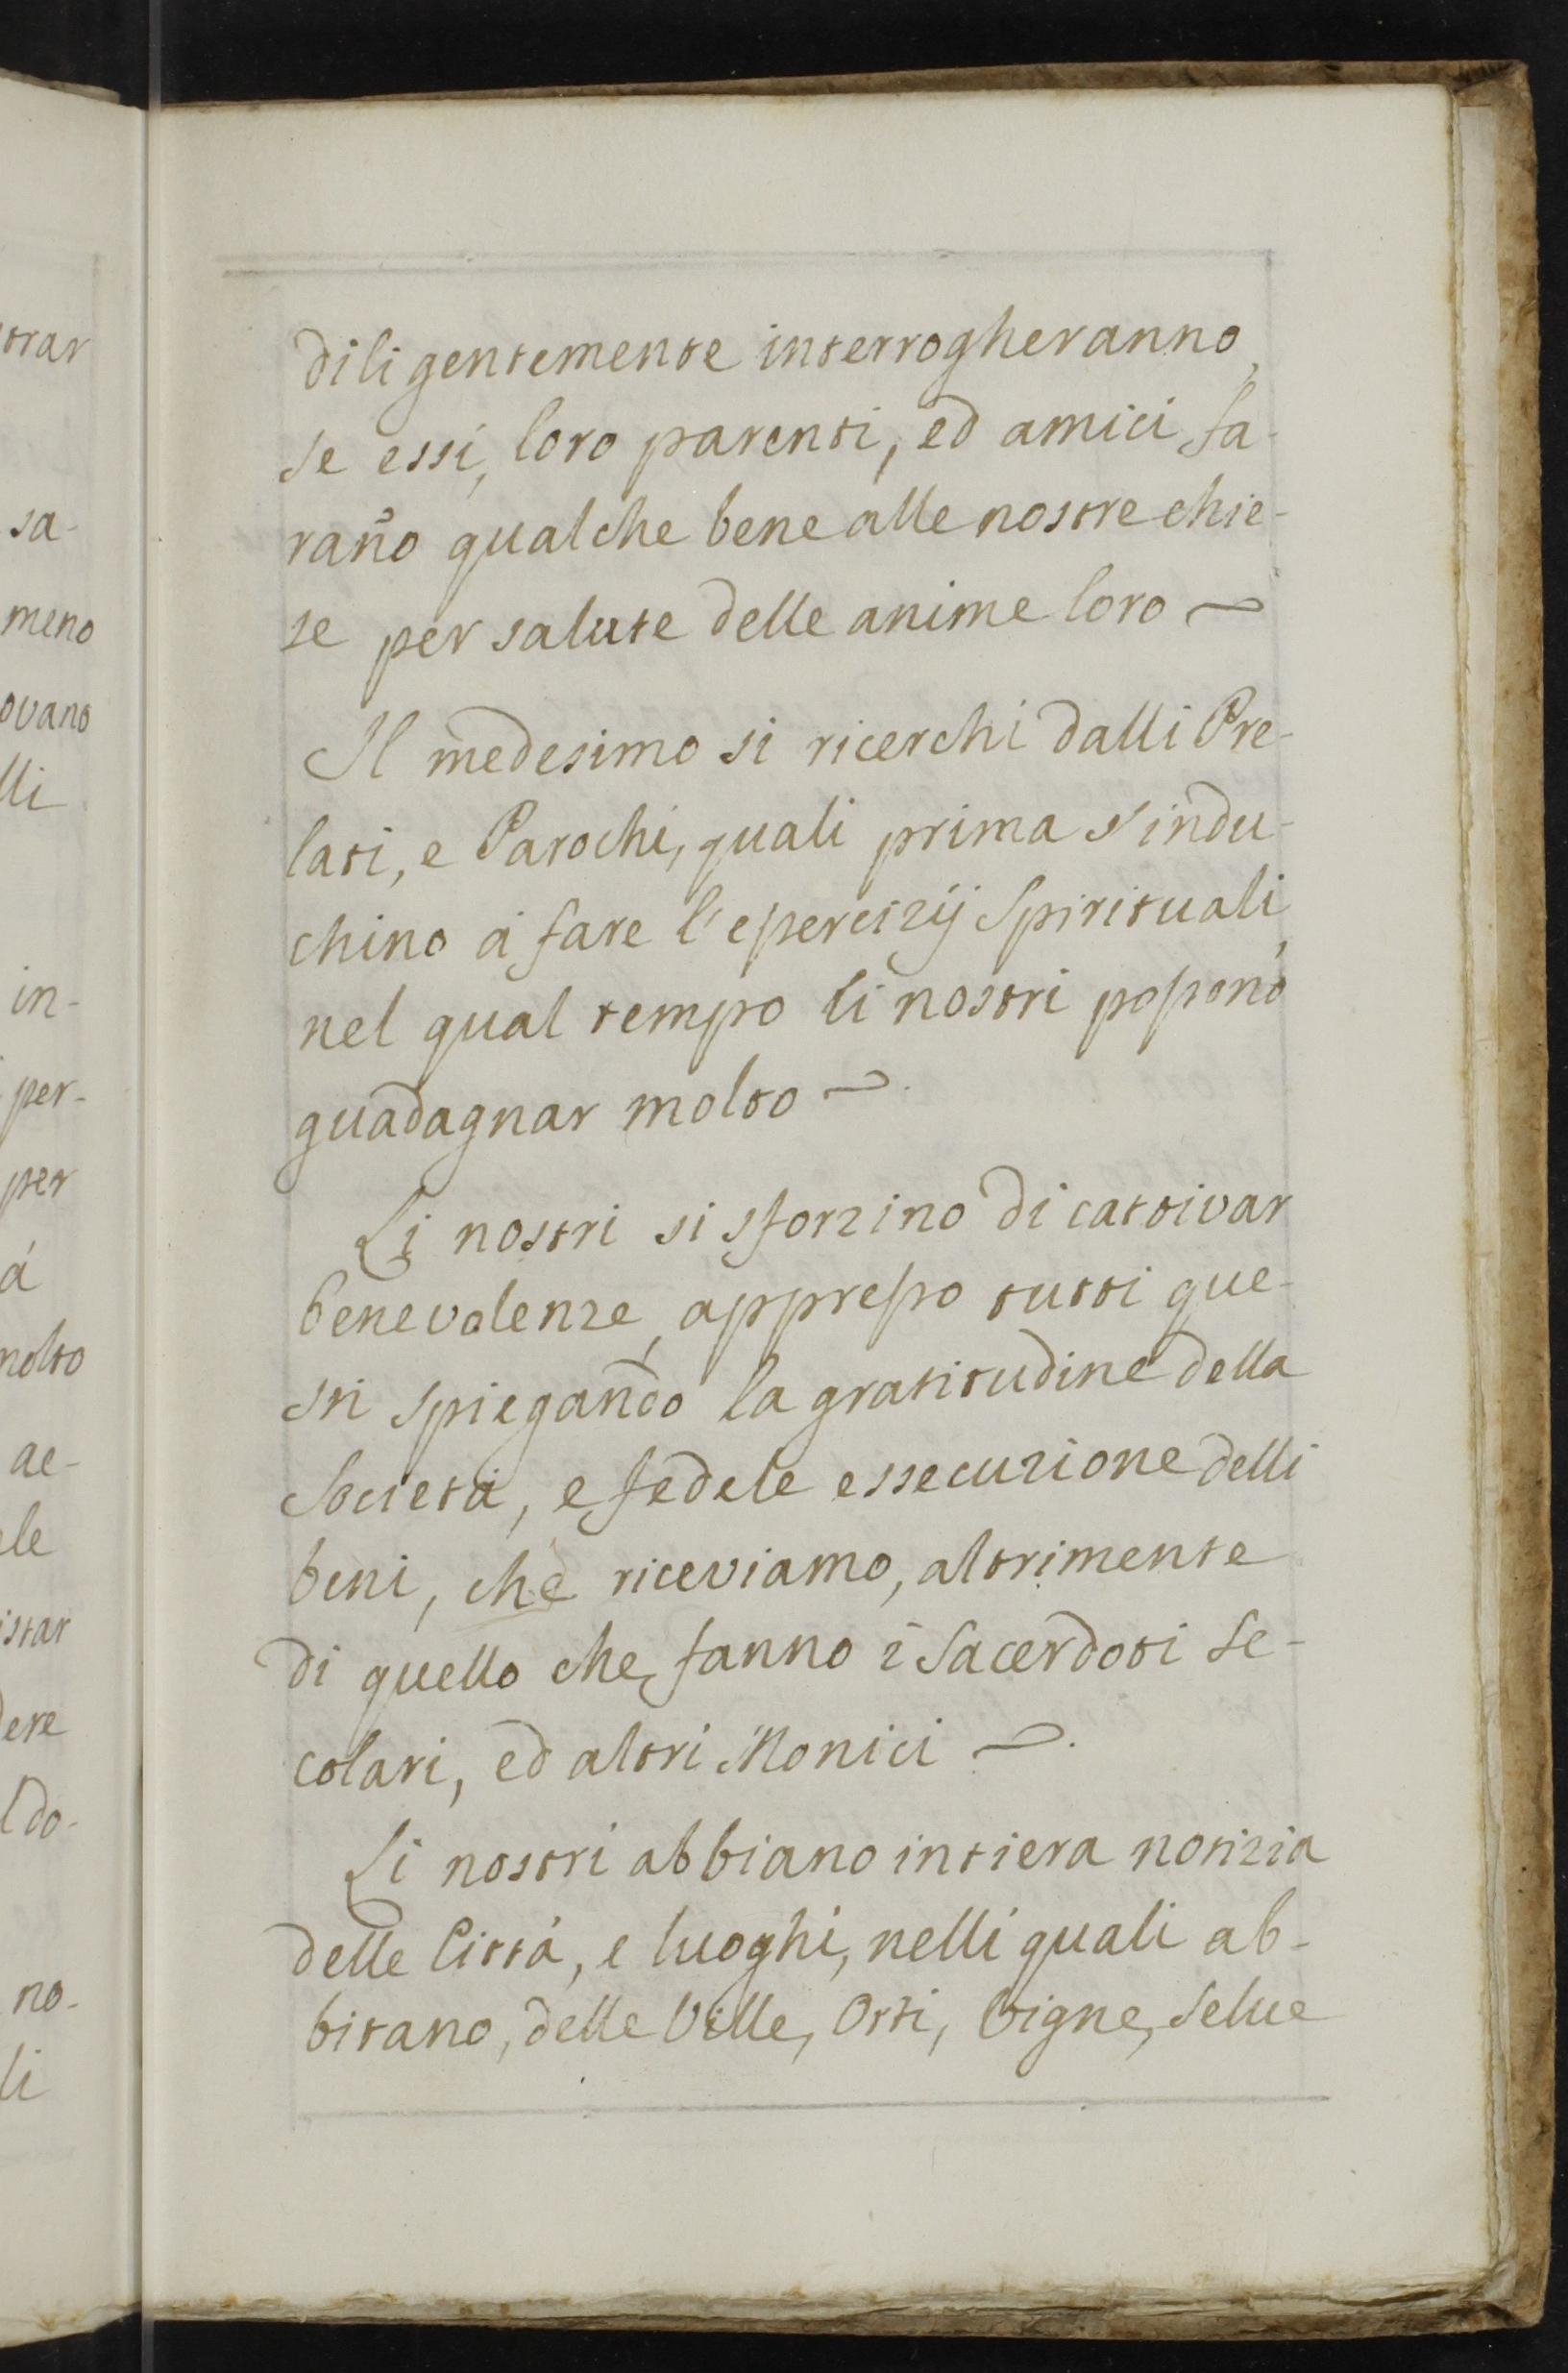 trar
sa-
meno
ovano
lli
in-
per-
per
á
molto
ae-
ele
istar
dere
l do-
no-
li
diligentemente interrogheranno,
se essi, loro parenti, ed amici fa-
rañо qualche bene alle nostre chie-
se per salute delle anime loro ~
Il medesimo si ricerchi dalli Pre-
lati, e Parochi, quali prima s'indu-
chino á fare l'essercizij Spirituali,
nel qual tempo li nostri possono
guadagnar molto ~.
Li nostri si sforzino di cattivar
benevolenze, appresso tutti que-
sti spiegando la gratitudine della
Societá, e fedele essecuzione delli
beni, che riceviamo, altrimente
di quello che fanno i Sacerdoti Se-
colari, ed altri Monici ~.
Li nostri abbiano intiera notizia
delle Cittá, e luoghi, nelli quali ab-
bitano, delle Ville, Orti, Vigne, Selue